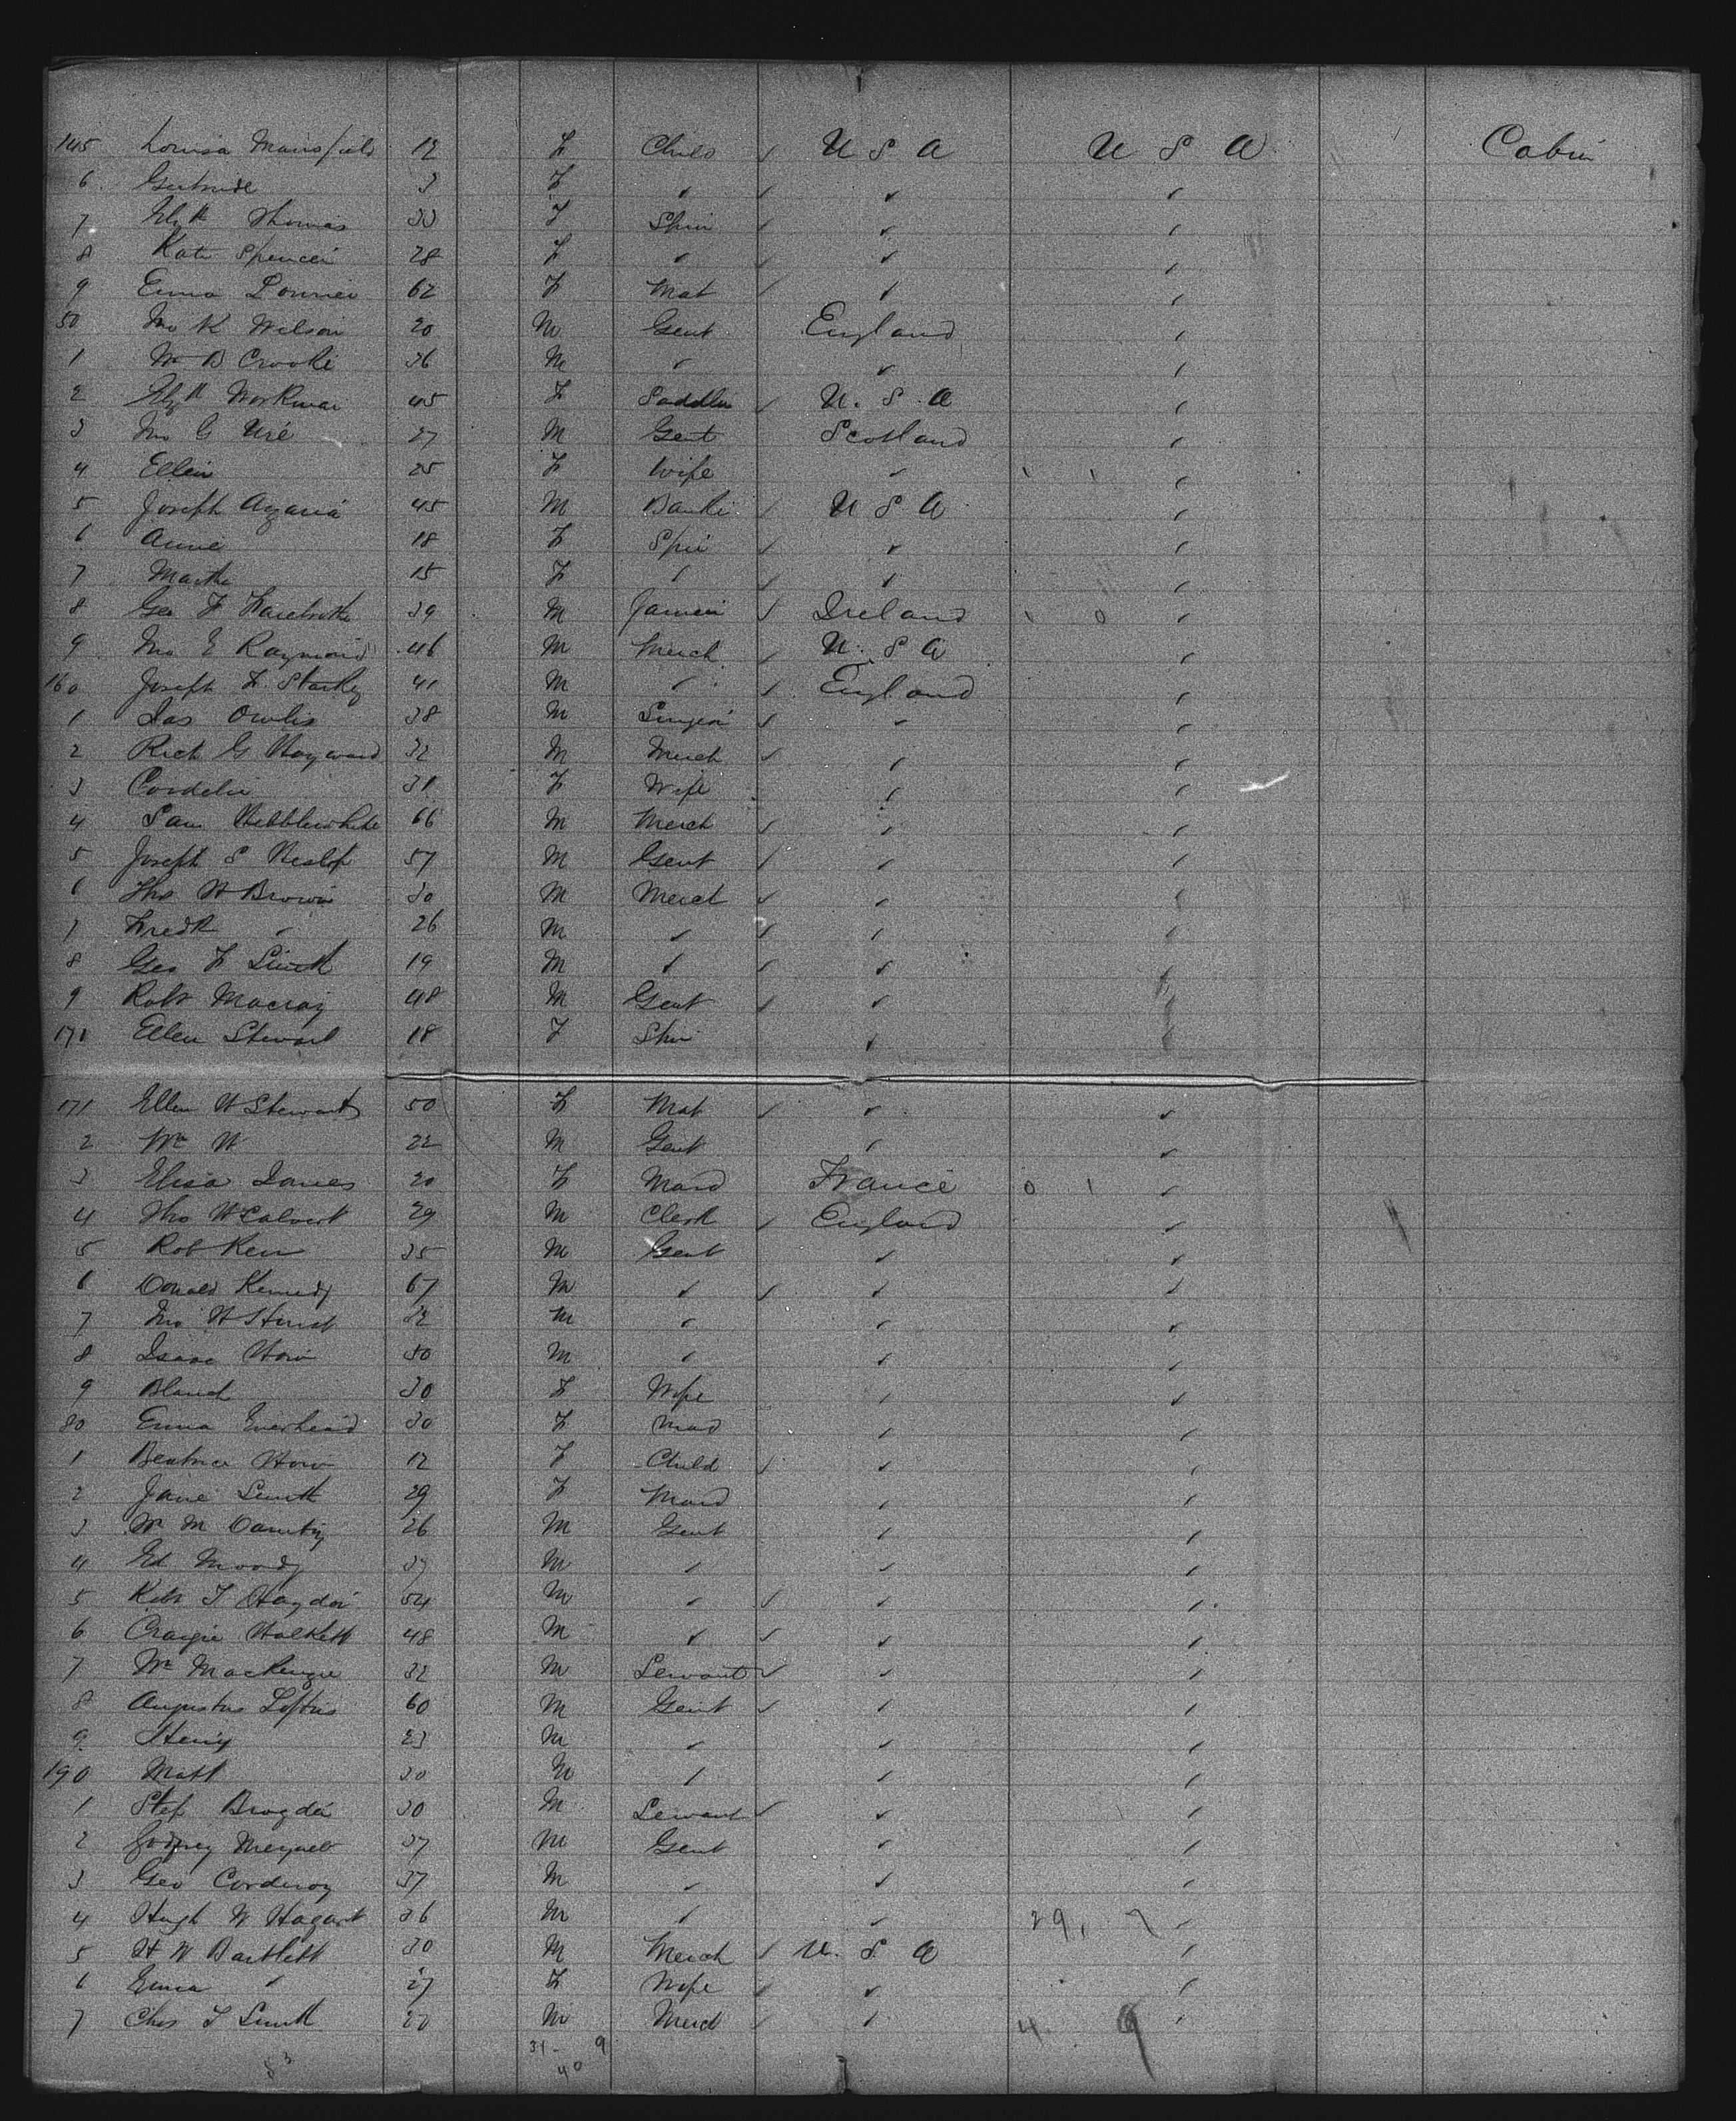 145 Louisa Mansfield 12 F Child ✓ U S A U S A Cabin
6 Gertrude 3 F ✓ ✓ ✓ ✓
7 Elizth Thomas 33 F Spin ✓ ✓ ✓
8 Kate Spencer 28 F ✓ ✓ ✓ ✓
9 Emma 62 F Mat ✓ ✓ ✓
50 Jno K Wilson 20 M Gent England ✓
1 Wm B Crooke 36 M ✓ ✓ ✓
2 Elizth Workman 45 F Saddler ✓ U. S. A ✓
3 Jno G Ure 27 M Gent Scotland ✓
4 Ellen 25 F Wife ✓ ✓
5 Joseph Azaria 45 M Banke ✓ U S A ✓
6 Anne 18 F Spin ✓ ✓ ✓
7 Martha 15 F ✓ ✓ ✓ ✓
8 Geo F 39 M ✓ Ireland 1 0 ✓
9 Jno E Raymond 46 M Merch ✓ U. S A ✓
160 Joseph F. Starkey 41 M ✓ ✓ England ✓
1 Jas 38 M Surgeon ✓ ✓ ✓
2 Rich G Hayward 32 M Merch ✓ ✓ ✓
3 Cordelia 31 F Wife ✓ ✓
4 Sam Hebblewhite 66 M Merch ✓ ✓ ✓
5 Joseph S Heslop 57 M Gent ✓ ✓ ✓
6 Tho W Brown 30 M Merch ✓ ✓ ✓
7 Fredk ✓ 26 M ✓ ✓ ✓ ✓
8 Geo F Smith 19 M ✓ ✓ ✓ ✓
9 Robt Macray 48 M Gent ✓ ✓ ✓
170 Ellen Stewart 18 F Spin ✓ ✓
171 Ellen W Stewart 50 F Mat ✓ ✓ ✓
2 Wm W 22 M Gent ✓ ✓
3 Elisa Davies 20 F Maid France 0 1 ✓
4 Tho W Calvert 29 M Clerk ✓ England ✓
5 Rob Kerr 35 M Gent ✓ ✓
6 Donald Kennedy 67 M ✓ ✓ ✓ ✓
7 Jno W Hurst 32 M ✓ ✓ ✓
8 Isaac How 50 M ✓ ✓ ✓
9 Blanch 30 F Wife ✓ ✓
80 Emma 30 F Maid ✓ ✓
1 Beatrice How 12 F Child ✓ ✓ ✓
2 Jane Smith 29 F Maid ✓ ✓
3 Wm M 26 M Gent ✓ ✓
4 Ed Moody 37 M ✓ ✓ ✓
5 Robt T Hayden 54 M ✓ ✓ ✓ ✓
6 Craigie Halkett 48 M ✓ ✓ ✓ ✓
7 Wm Mackenzie 32 M Servant ✓ ✓ ✓
8 Augustus Loftus 60 M Gent ✓ ✓ ✓
9 Henry 23 M ✓ ✓ ✓
190 Matt 20 M ✓ ✓ ✓
1 Step Brogden 30 M Servant ✓ ✓ ✓
2 Godfrey Meynell 37 M Gent ✓ ✓
3 Geo Corderoy 37 M ✓ ✓ ✓
4 Hugh W Hogart 36 M ✓ ✓ 29, 7 ✓
5 H W Bartlett 30 M Merch ✓ U. S. A ✓
6 Emma ✓ 27 F Wife ✓ ✓ ✓
7 Chas T Smith 20 M Merch ✓ ✓ 4. 9 ✓
31 - 9
40